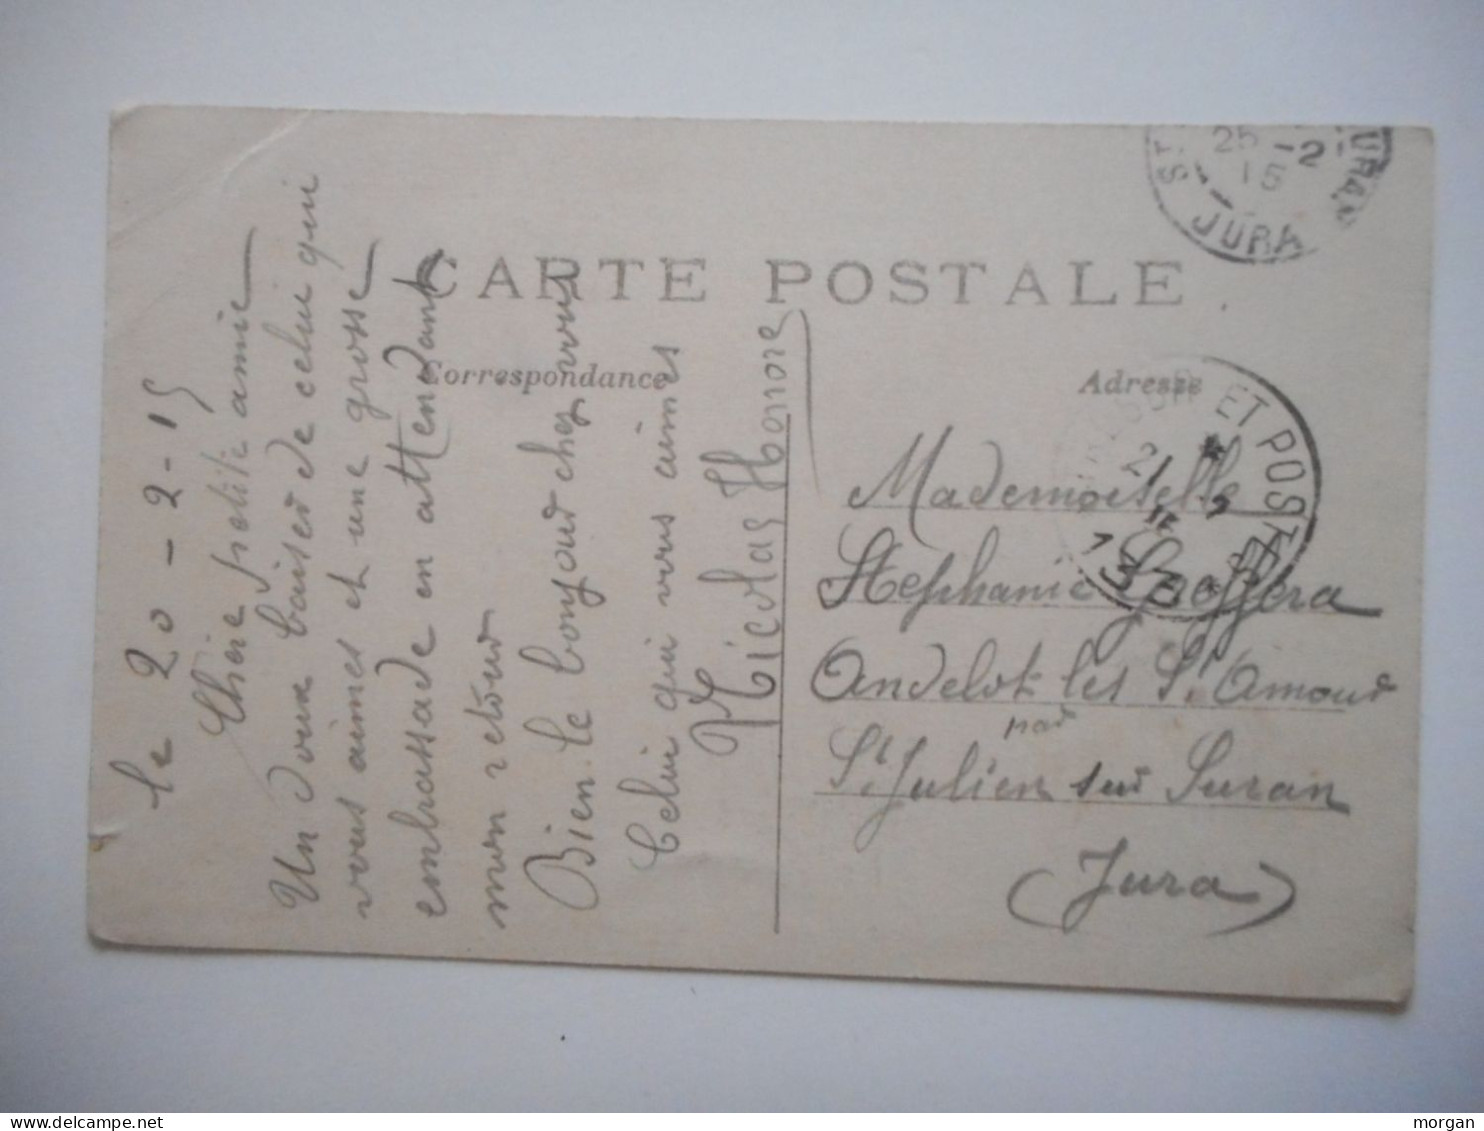 CARTE POSTALE
Correspondance
Adresse
le 20 - 2 - 15
Chère petite amie
Un doux baiser de celui qui
vous aimes et une grosse
embrassade en attendant
mon retour
Bien le bonjour chez vous
Celui qui vous aimes
Nicolas Honore
Mademoiselle
Stephanie
Andelot les St Amour
par
St Julien sur Suran
(Jura)
25 -2
15
JURA
ET POST
21
delcampe.net
morgan